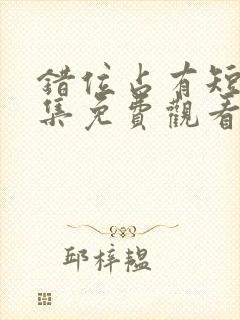 错位占有短
集免費觀看
邱梓韞